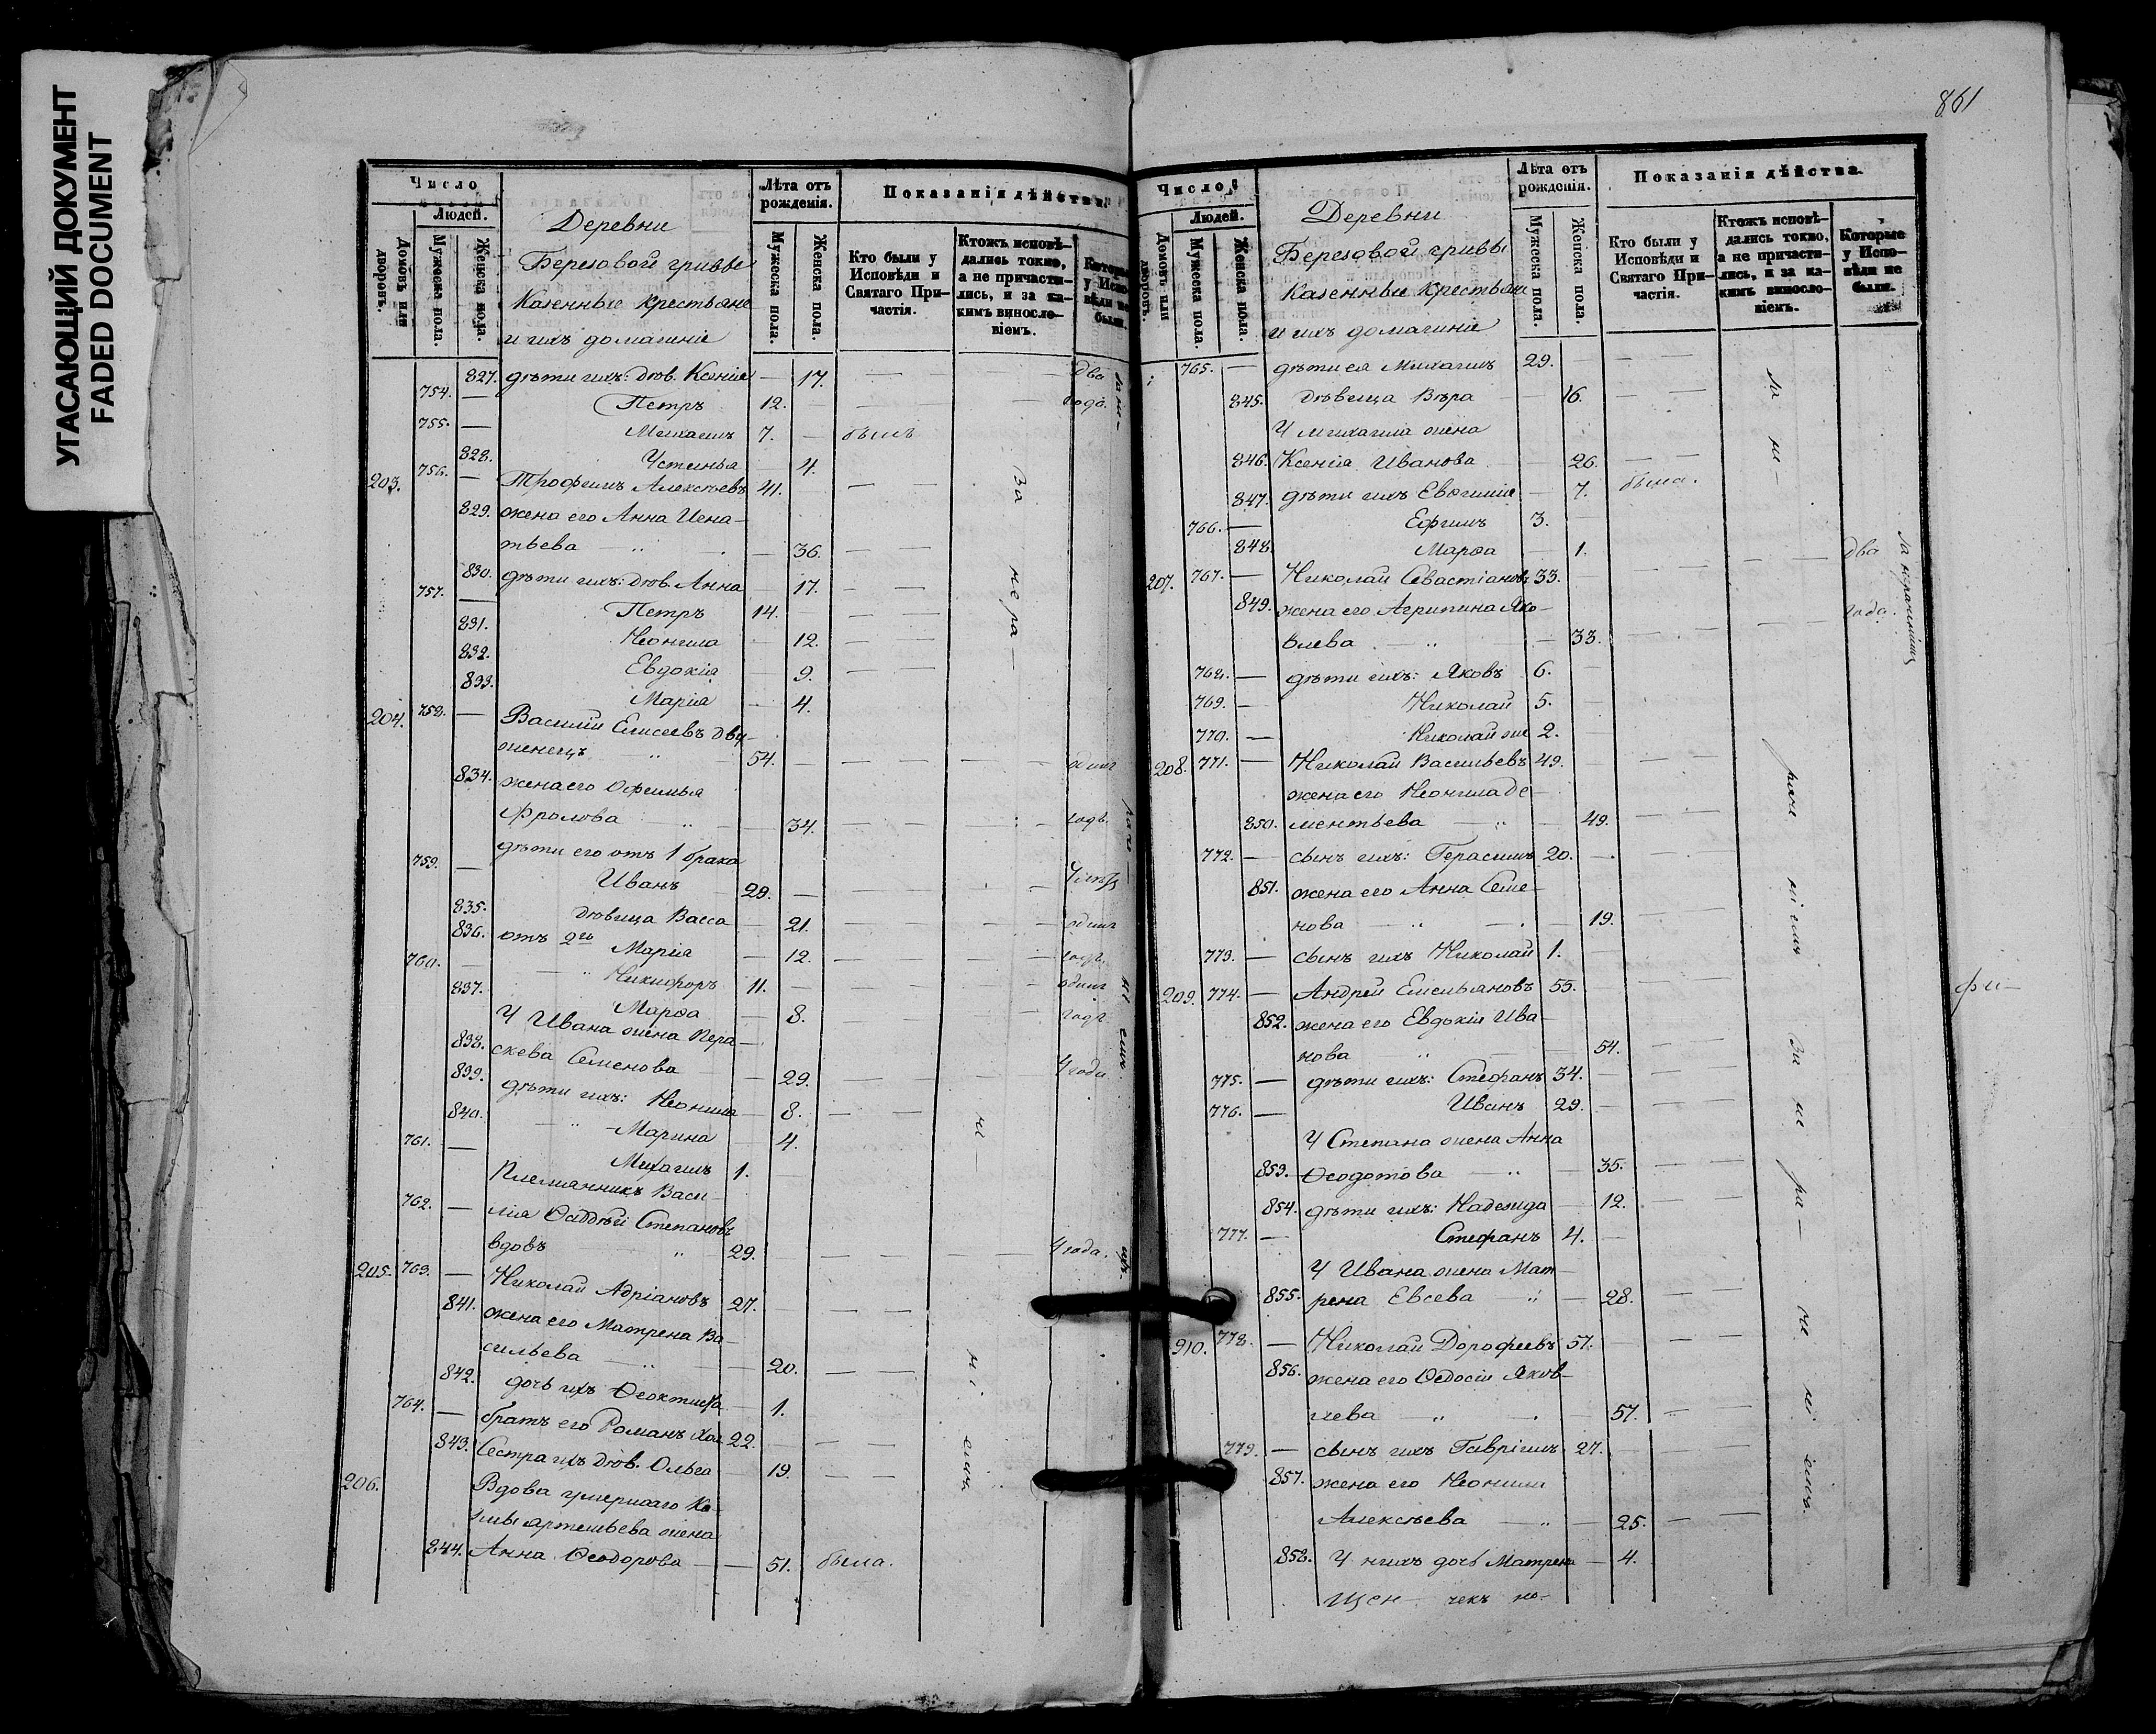 УГАСАЮЩИЙ ДОКУМЕНТ
FADED DOCUMENT
Число
Людей.
Домовъ или дворовъ.
Мужеска пола.
Женска пола.
Деревни
Березовой гривы
Казенные крестьяне
и ихъ домашніе
Лѣта отъ рожденія.
Мужеска пола.
Женска пола.
Показанія дѣйства.
Кто были у Исповѣди и Святаго Причастія.
Ктожъ исповѣдались токмо, а не причастились, и за какимъ винословіемъ.
827. дѣти ихъ: дѣв. Ксенія — 17. — — два
754. — Петръ 12. — — года.
755. — Михаилъ 7. — былъ
828. Устинья — 4.
203. 756. — Трофимъ Алексѣевъ 41. — —
829. жена его Анна Игна-
тьева — 36. — —
830. дѣти ихъ: дѣв. Анна — 17. — —
757. — Петръ 14. — —
831. Неонила — 12. — —
832. Евдокія — 9. — —
833. Марія — 4.
204. 758. — Василій Елисеевъ дву-
женецъ 54. — — — одинъ
834. жена его Офимья
Фролова — 34. — — годъ.
дѣти его отъ 1 брака
759. — Иванъ 29. — — —
835. дѣвица Васса — 21. — — одинъ
836. отъ 2го Марія — 12. — — годъ.
760. — Никифоръ 11. — — одинъ
837. Марѳа — 8. годъ
У Ивана жена Пера-
838. скева Семенова — 29. — — 4 года
839. дѣти ихъ: Неонила — 8. — —
840. Марина — 4.
761. — Михаилъ 1. —
Племянникъ Васи-
762. — лія Ѳаддѣй Степановъ
вдовъ 29. — — — 4 года.
205. 763. — Николай Адріановъ 27. — — —
841. жена его Матрена Ва-
сильева — 20. — —
842. дочь ихъ Ѳеоктиста — 1.
764. — братъ его Романъ хол. 22. — —
843. Сестра ихъ дѣв. Ольга — 19. — —
206. Вдова умершаго Ко-
змы Артемьева жена
844. Анна Ѳеодорова — 51. была.
За
не ра-
не-
ні-
емъ
861
Число
Людей.
Домовъ или дворовъ.
Мужеска пола.
Женска пола.
Деревни
Березовой гривы
Казенные крестьяне
и ихъ домашніе
Лѣта отъ рожденія.
Мужеска пола.
Женска пола.
Показанія дѣйства.
Кто были у Исповѣди и Святаго Причастія.
Ктожъ исповѣдались токмо, а не причастились, и за какимъ винословіемъ.
Которые у Исповѣди не были.
765. — дѣти ея Михаилъ 29. — —
845. дѣвица Вѣра — 16. — —
У Михаила жена
846. Ксенія Иванова — 26. — —
847. дѣти ихъ Евѳимія — 7. была.
766. — Ефимъ 3. —
848. Марѳа — 1.
207. 767. — Николай Севастіановъ 33. — — — два
849. жена его Агрипина Яко-
влева — 33. — — — года.
768. — дѣти ихъ: Яковъ 6. —
769. — Николай 5. —
770. — Николай же 2. —
208. 771. — Николай Васильевъ 49. — —
жена его Неонила Де-
850. ментьева — 49. — —
772. — сынъ ихъ: Герасимъ 20. — —
851. жена его Анна Семе-
нова — 19. — —
773. — сынъ ихъ Николай 1. —
209. 774. — Андрей Емельяновъ 55. — —
852. жена его Евдокія Ива-
нова — 54. — —
775. — дѣти ихъ: Стефанъ 34. — —
776. — Иванъ 29. — —
У Степана жена Анна
853. Ѳеодотова — 35. — —
854. дѣти ихъ: Надежда — 12. — —
777. — Стефанъ 4. —
У Ивана жена Мат-
855. рена Евсева — 28. — —
910. 778. — Николай Дорофеевъ 57. — —
856. жена его Ѳедосія Яков-
лева — 57. — —
779. — сынъ ихъ Гавріилъ 27. — —
857. жена его Неонила
Алексѣева — 25. — —
858. У нихъ дочь Матрена — 4.
за
не-
ніемъ
За
не
ра-
че
ні
емъ.
За нераченіемъ